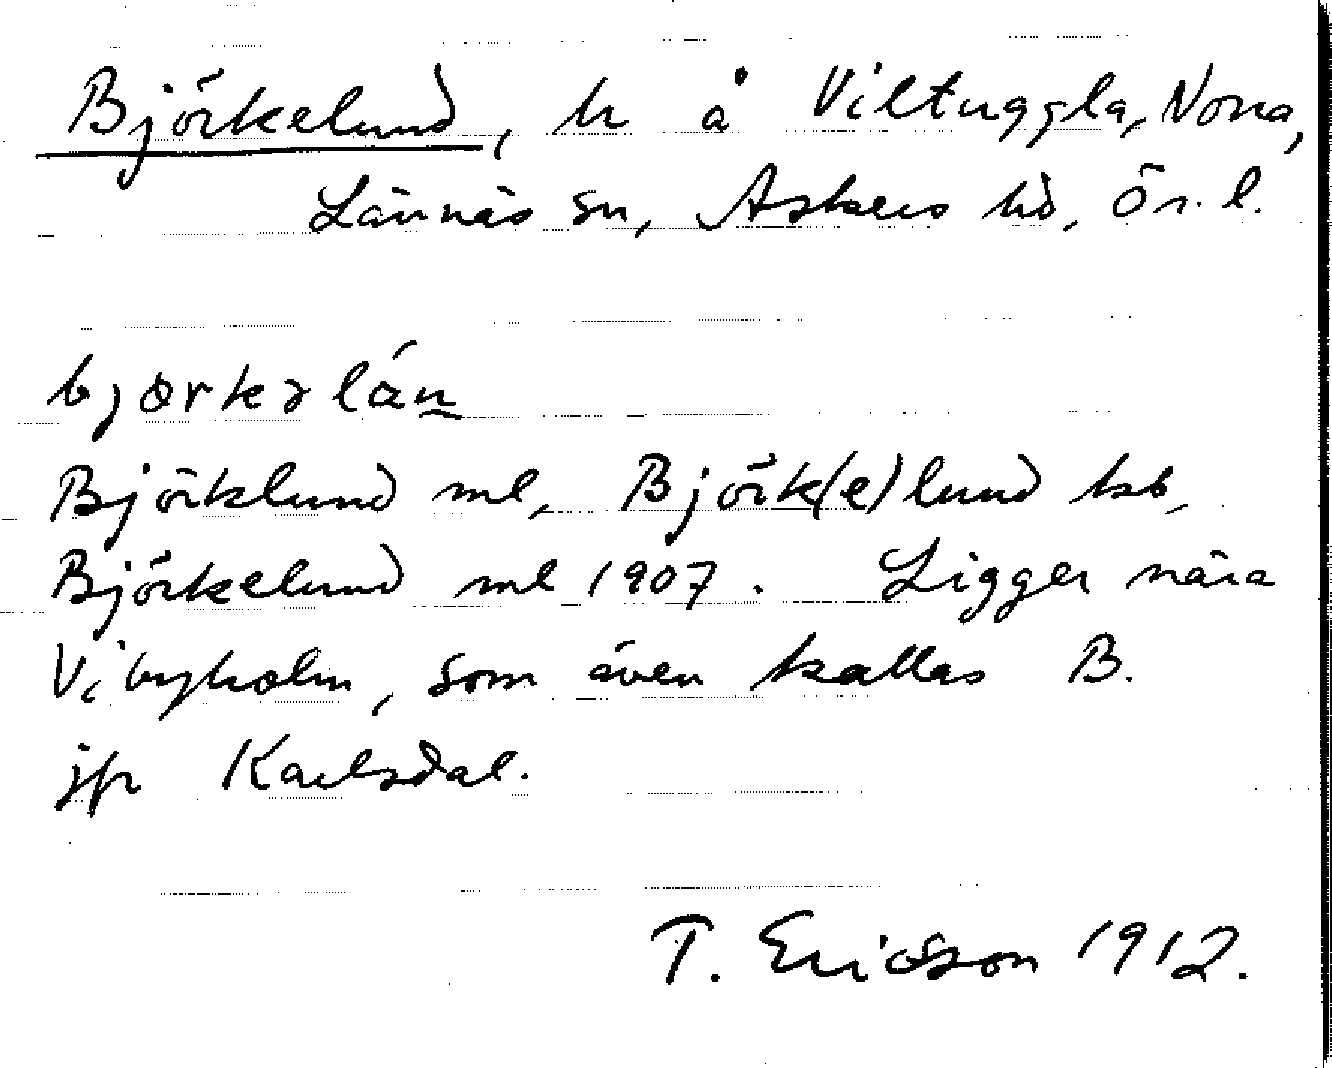 Björkelund, h å Viltuggla, Norra,
Lännäs sn, Askers hd, Ör. l.
bjørkəlán
Björklund ml, Björk(e)lund kb,
Björkelund ml 1907. Ligger nära
Vibyholm, som även kallas B.
jfr Karlsdal.
T. Ericsson 1912.